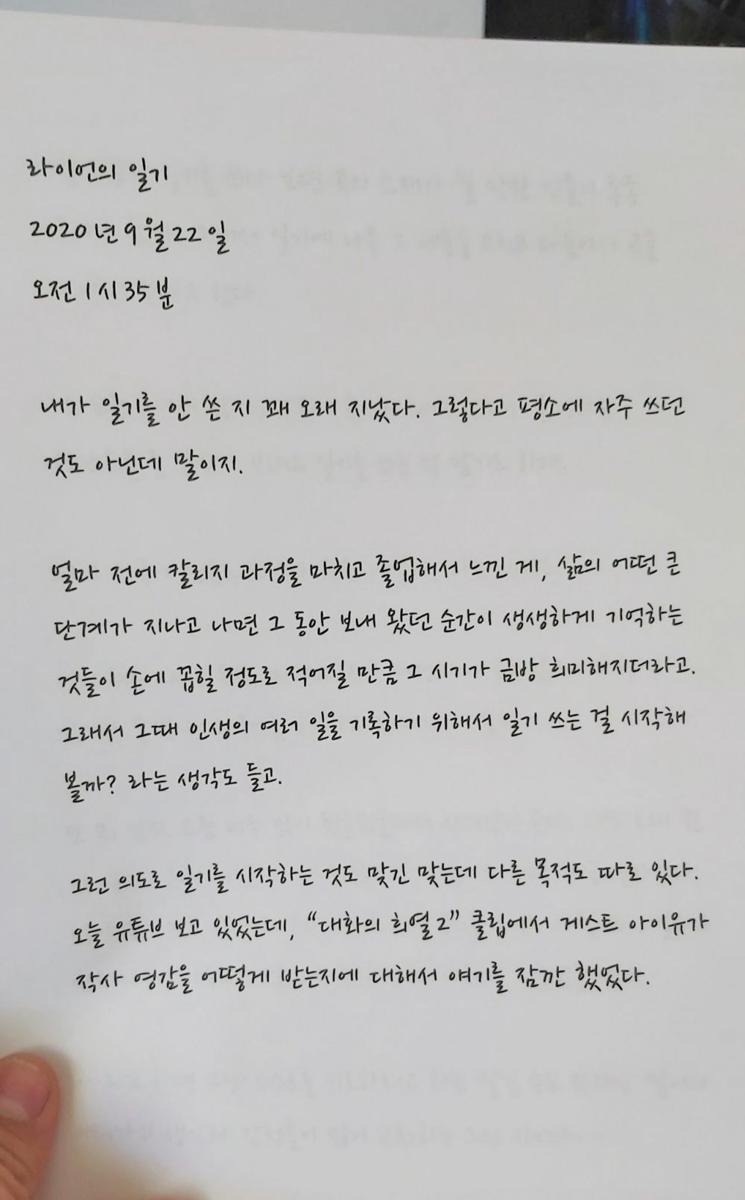 라이언의 일기
2020년 9월 22일
오전 1시 35분
내가 일기를 안 쓴 지 꽤 오래 지났다. 그렇다고 평소에 자주 쓰던
것도 아닌데 말이지.
얼마 전에 칼리지 과정을 마치고 졸업해서 느낀 게, 삶의 어떤 큰
단계가 지나고 나면 그 동안 보내 왔던 순간이 생생하게 기억하는
것들이 손에 꼽힐 정도로 적어질 만큼 그 시기가 금방 희미해지더라고.
그래서 그때 인생의 여러 일을 기록하기 위해서 일기 쓰는 걸 시작해
볼까? 라는 생각도 들고.
그런 의도로 일기를 시작하는 것도 맞긴 맞는데 다른 목적도 따로 있다.
오늘 유튜브 보고 있었는데, “대화의 희열2” 클립에서 게스트 아이유가
작사 영감을 어떻게 받는지에 대해서 얘기를 잠깐 했었다.